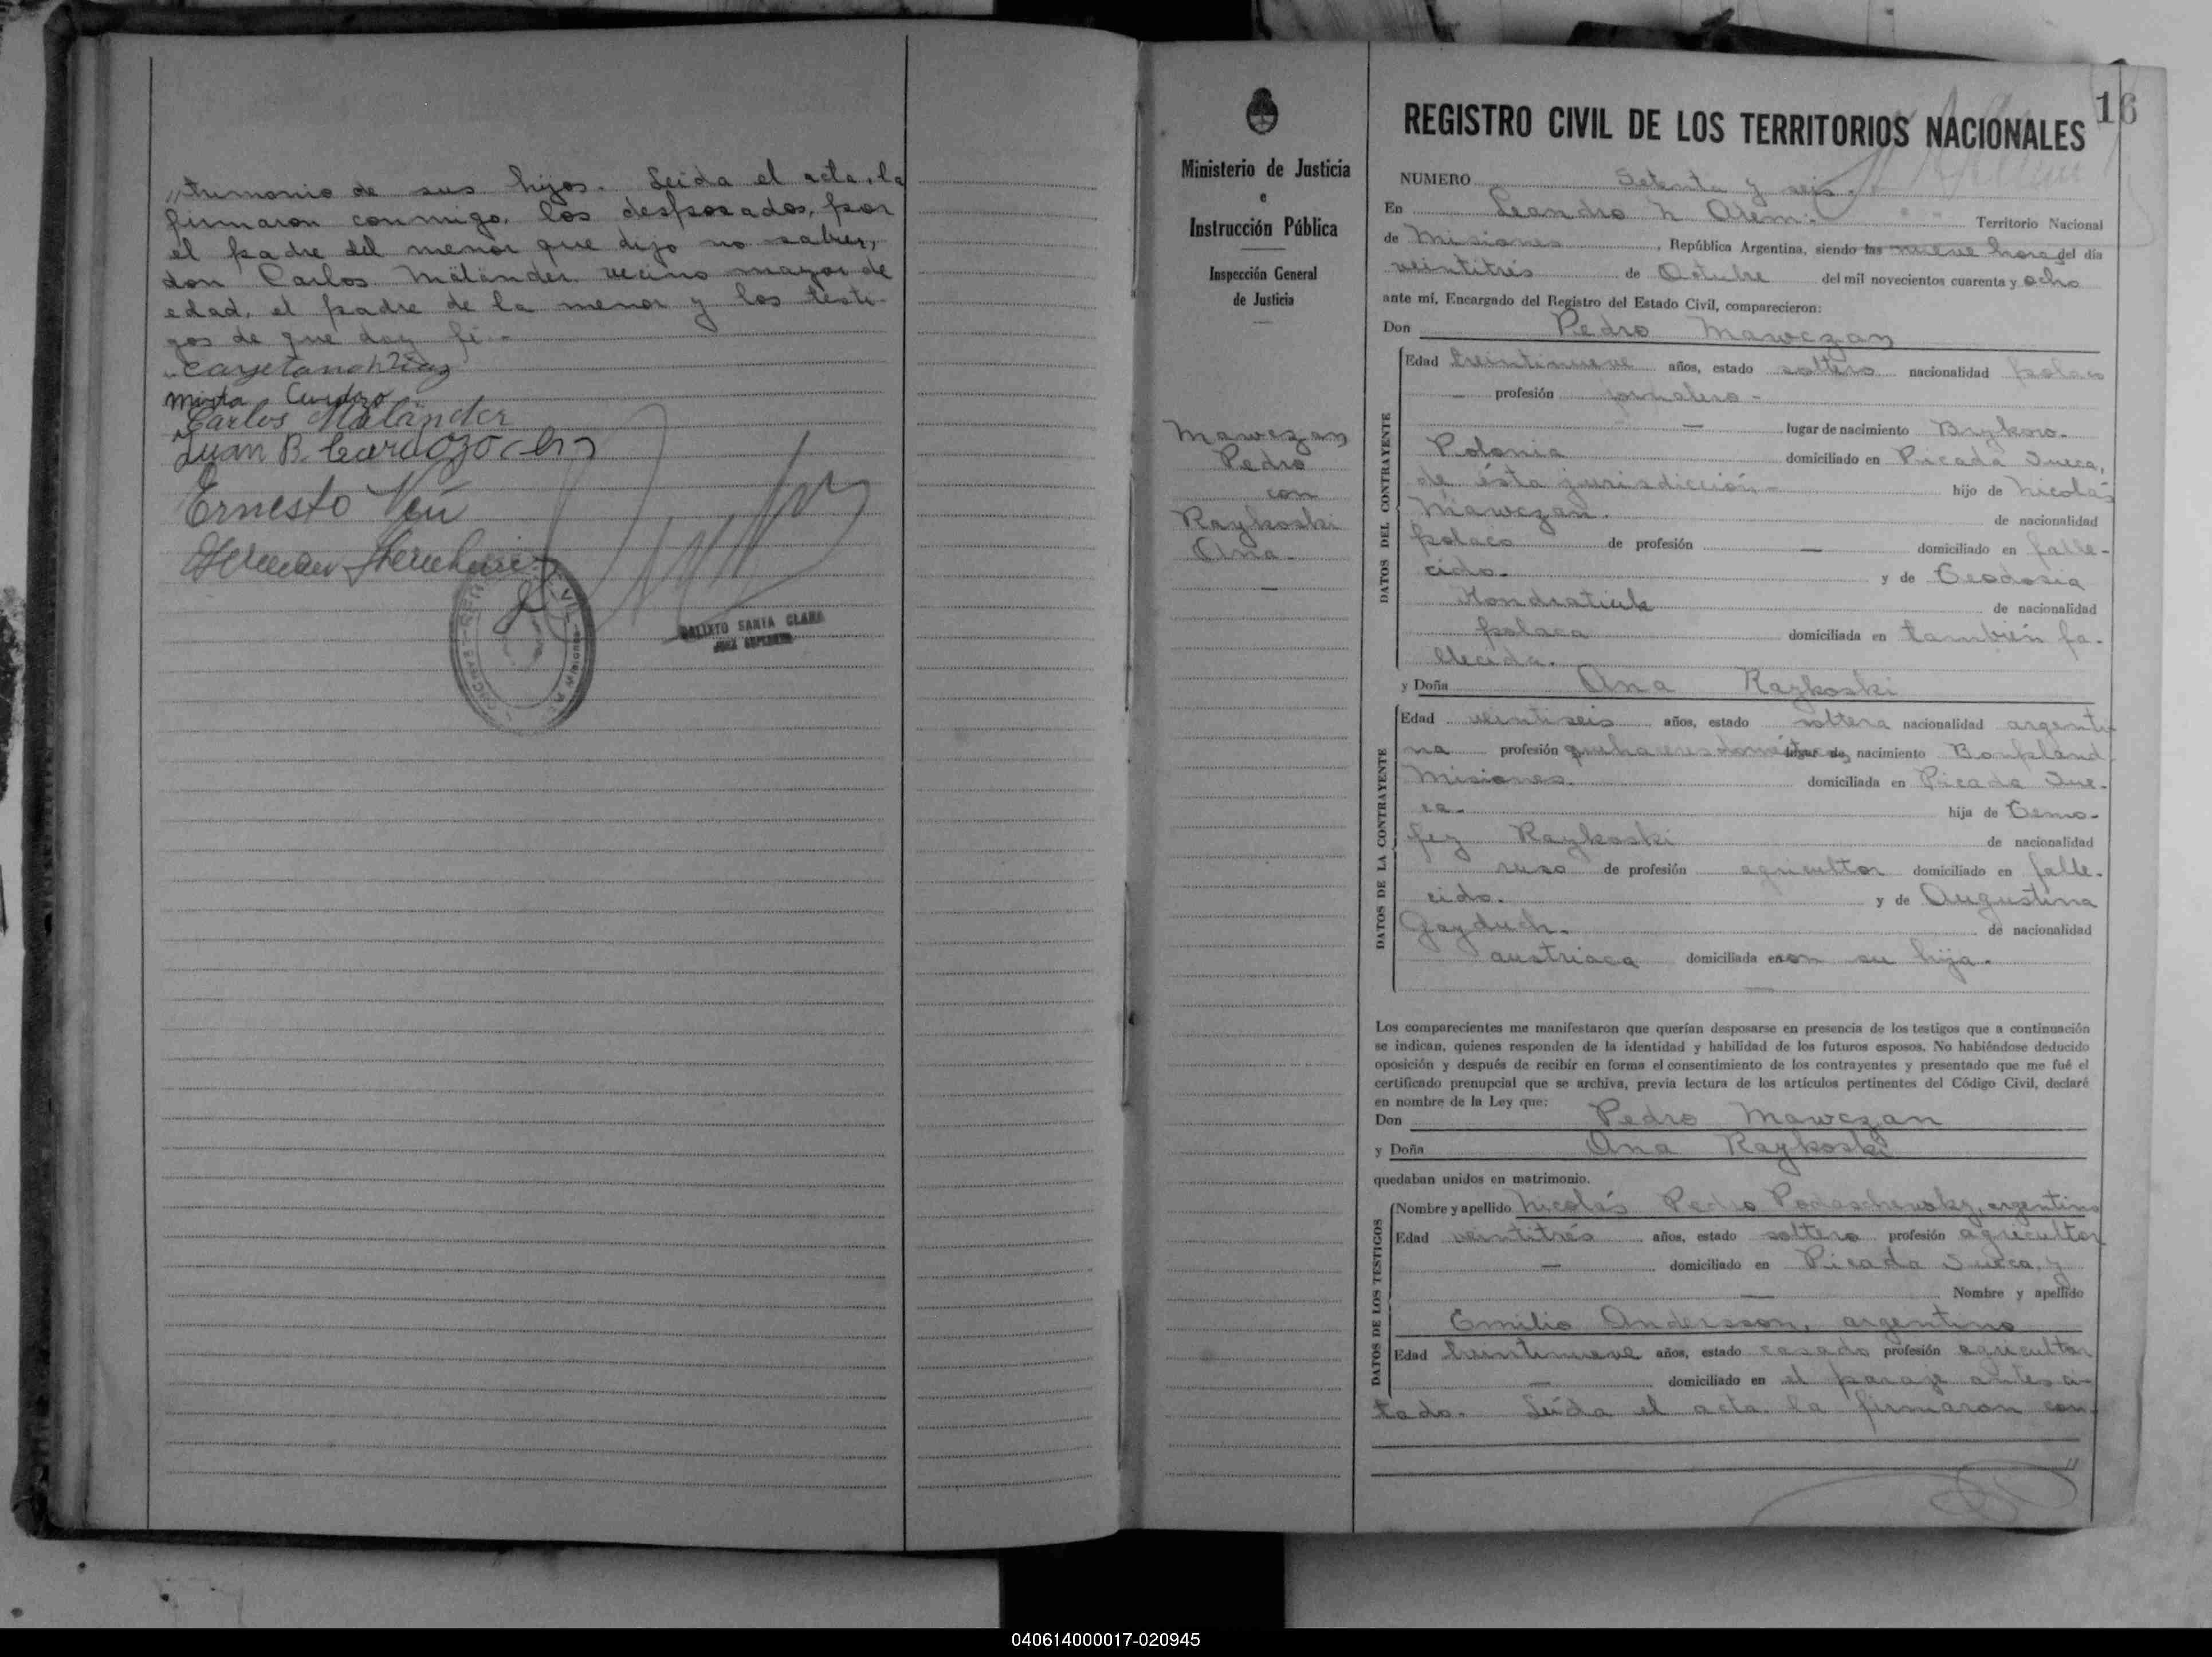 „trimonio de sus hijos. Leida el acta, la
firmaron conmigo, los desposados, por
el padre del menor que dijo no saber,
don Carlos Mäländer vecino mayor de
edad, el padre de la menor y los testi-
gos de que doy fé.-
Cayetano Diaz
Carlos Mäländer
Juan B. Cardozo (h)
Ernesto Neü
CALIXTO SANTA CLARA
JUEZ SUPLENTE
16
Ministerio de Justicia
e
Instrucción Pública
Inspección General
de Justicia
Mawczan
Pedro
con
Raykoski
Ana.
REGISTRO CIVIL DE LOS TERRITORIOS NACIONALES
NUMERO Setenta y seis.
En Leandro N Alem. Territorio Nacional
de Misiones, República Argentina, siendo las nueve horas del día
veintitrés de Octubre del mil novecientos cuarenta y ocho
ante mí, Encargado del Registro del Estado Civil, comparecieron:
Don Pedro Mawczan
DATOS DEL CONTRAYENTE
Edad treintinueve años, estado soltero nacionalidad polaco
— profesión jornalero -
— lugar de nacimiento
Polonia domiciliado en Picada Sueca,
de ésta jurisdicción - hijo de Nicolás
Mawczan. de nacionalidad
polaco de profesión — domiciliado en falle-
cido. y de Teodosia
Kondratiuk de nacionalidad
polaca domiciliada en también fa-
llecida.
y Doña Ana Raykoski
DATOS DE LA CONTRAYENTE
Edad veintiseis años, estado soltera nacionalidad argenti-
na profesión quehaceres domésticos lugar de nacimiento Bonpland
Misiones. domiciliada en Picada Sue-
ca. hija de Temo-
fey Raykoski de nacionalidad
ruso de profesión agricultor domiciliado en falle-
cido. y de Augustina
Gayduch. de nacionalidad
austriaca domiciliada en con su hija.
Los comparecientes me manifestaron que querían desposarse en presencia de los testigos que a continuación
se indican, quienes responden de la identidad y habilidad de los futuros esposos. No habiéndose deducido
oposición y después de recibir en forma el consentimiento de los contrayentes y presentado que me fué el
certificado prenupcial que se archiva, previa lectura de los artículos pertinentes del Código Civil, declaré
en nombre de la Ley que:
Don Pedro Mawczan
y Doña Ana Raykoski
quedaban unidos en matrimonio.
DATOS DE LOS TESTIGOS
Nombre y apellido Nicolás Pedro Podaschevsky, argentino
Edad veintitrés años, estado soltero profesión agricultor
— domiciliado en Picada Sueca, y
— Nombre y apellido
Emilio Andersson, argentino
Edad treintinueve años, estado casado profesión agricultor
— domiciliado en el paraje antes ci-
tado. Leída el acta la firmaron con-
040614000017-020945